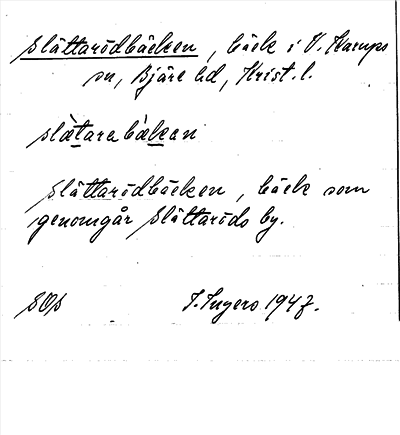 Slättarödbäcken, bäck i V. Karups
sn, Bjäre hd, Krist. l.
slätarabäkan
Slättarödbäcken, bäck som
genomgår Slättaröds by.
SOs
J. Ingers 1947.